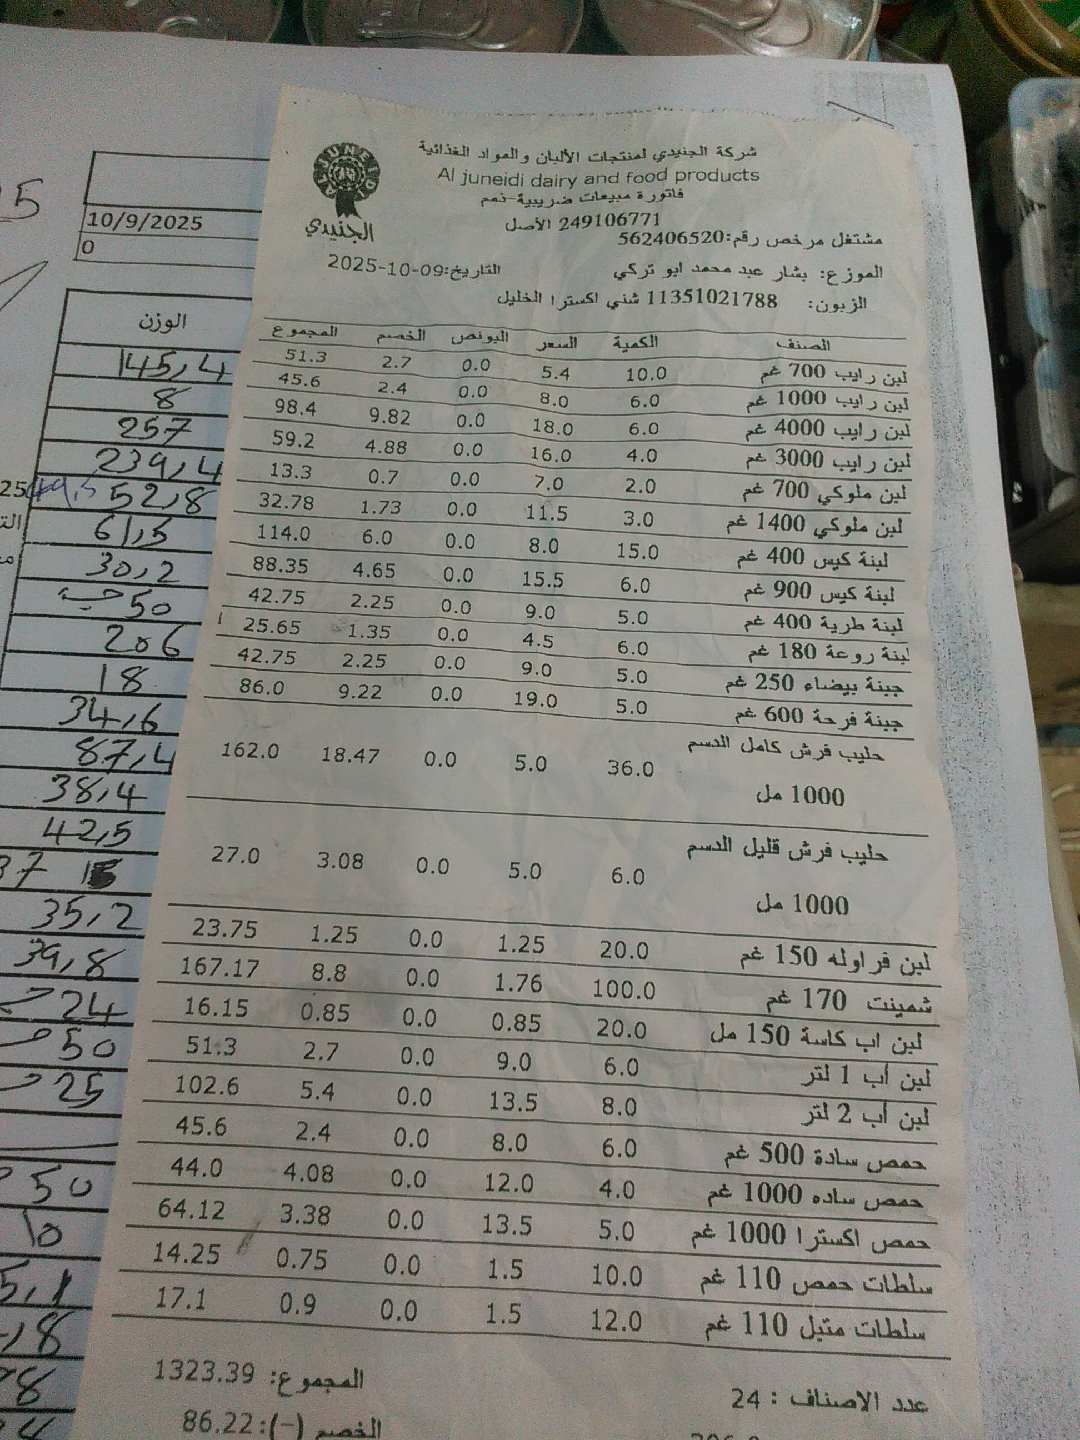 شركة الجنيدي لمنتجات الألبان والمواد الغذائية
Al juneidi dairy and food products
فاتورة مبيعات ضريبية-نمم
249106771 الأصل
مشتغل مرخص رقم:562406520
الجنيدي
الموزع: بشار عبد محمد ابو تركي
التاريخ:2025-10-09
الزبون: 11351021788 شني اكسترا الخليل
الصنف الكمية السعر البونص الخصم المجموع
لبن رايب 700 غم 10.0 5.4 0.0 2.7 51.3
لبن رايب 1000 غم 6.0 8.0 0.0 2.4 45.6
لبن رايب 4000 غم 6.0 18.0 0.0 9.82 98.4
لبن رايب 3000 غم 4.0 16.0 0.0 4.88 59.2
لبن ملوكي 700 غم 2.0 7.0 0.0 0.7 13.3
لبن ملوكي 1400 غم 3.0 11.5 0.0 1.73 32.78
لبنة كيس 400 غم 15.0 8.0 0.0 6.0 114.0
لبنة كيس 900 غم 6.0 15.5 0.0 4.65 88.35
لبنة طرية 400 غم 5.0 9.0 0.0 2.25 42.75
لبنة روعة 180 غم 6.0 4.5 0.0 1.35 25.65
جبنة بيضاء 250 غم 5.0 9.0 0.0 2.25 42.75
جبنة فرحة 600 غم 5.0 19.0 0.0 9.22 86.0
حليب فرش كامل الدسم
1000 مل 36.0 5.0 0.0 18.47 162.0
حليب فرش قليل الدسم
1000 مل 6.0 5.0 0.0 3.08 27.0
لبن فراوله 150 غم 20.0 1.25 0.0 1.25 23.75
شمينت 170 غم 100.0 1.76 0.0 8.8 167.17
لبن اب كاسة 150 مل 20.0 0.85 0.0 0.85 16.15
لبن أب 1 لتر 6.0 9.0 0.0 2.7 51.3
لبن أب 2 لتر 8.0 13.5 0.0 5.4 102.6
حمص سادة 500 غم 6.0 8.0 0.0 2.4 45.6
حمص ساده 1000 غم 4.0 12.0 0.0 4.08 44.0
حمص اكسترا 1000 غم 5.0 13.5 0.0 3.38 64.12
سلطات حمص 110 غم 10.0 1.5 0.0 0.75 14.25
سلطات متبل 110 غم 12.0 1.5 0.0 0.9 17.1
عدد الاصناف : 24
المجموع: 1323.39
الخصم (-):86.22
10/9/2025
0
الوزن
145,4
8
257
239,4
52,8
61,5
30,2
50
206
18
34,6
87,4
38,4
42,5
35,2
39,8
24
50
25
50
10